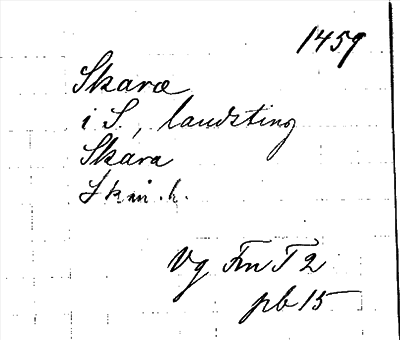 1459
Skaræ
i S., landsting
Skara
Skån. h.
Vg Fm T 2
pb 15